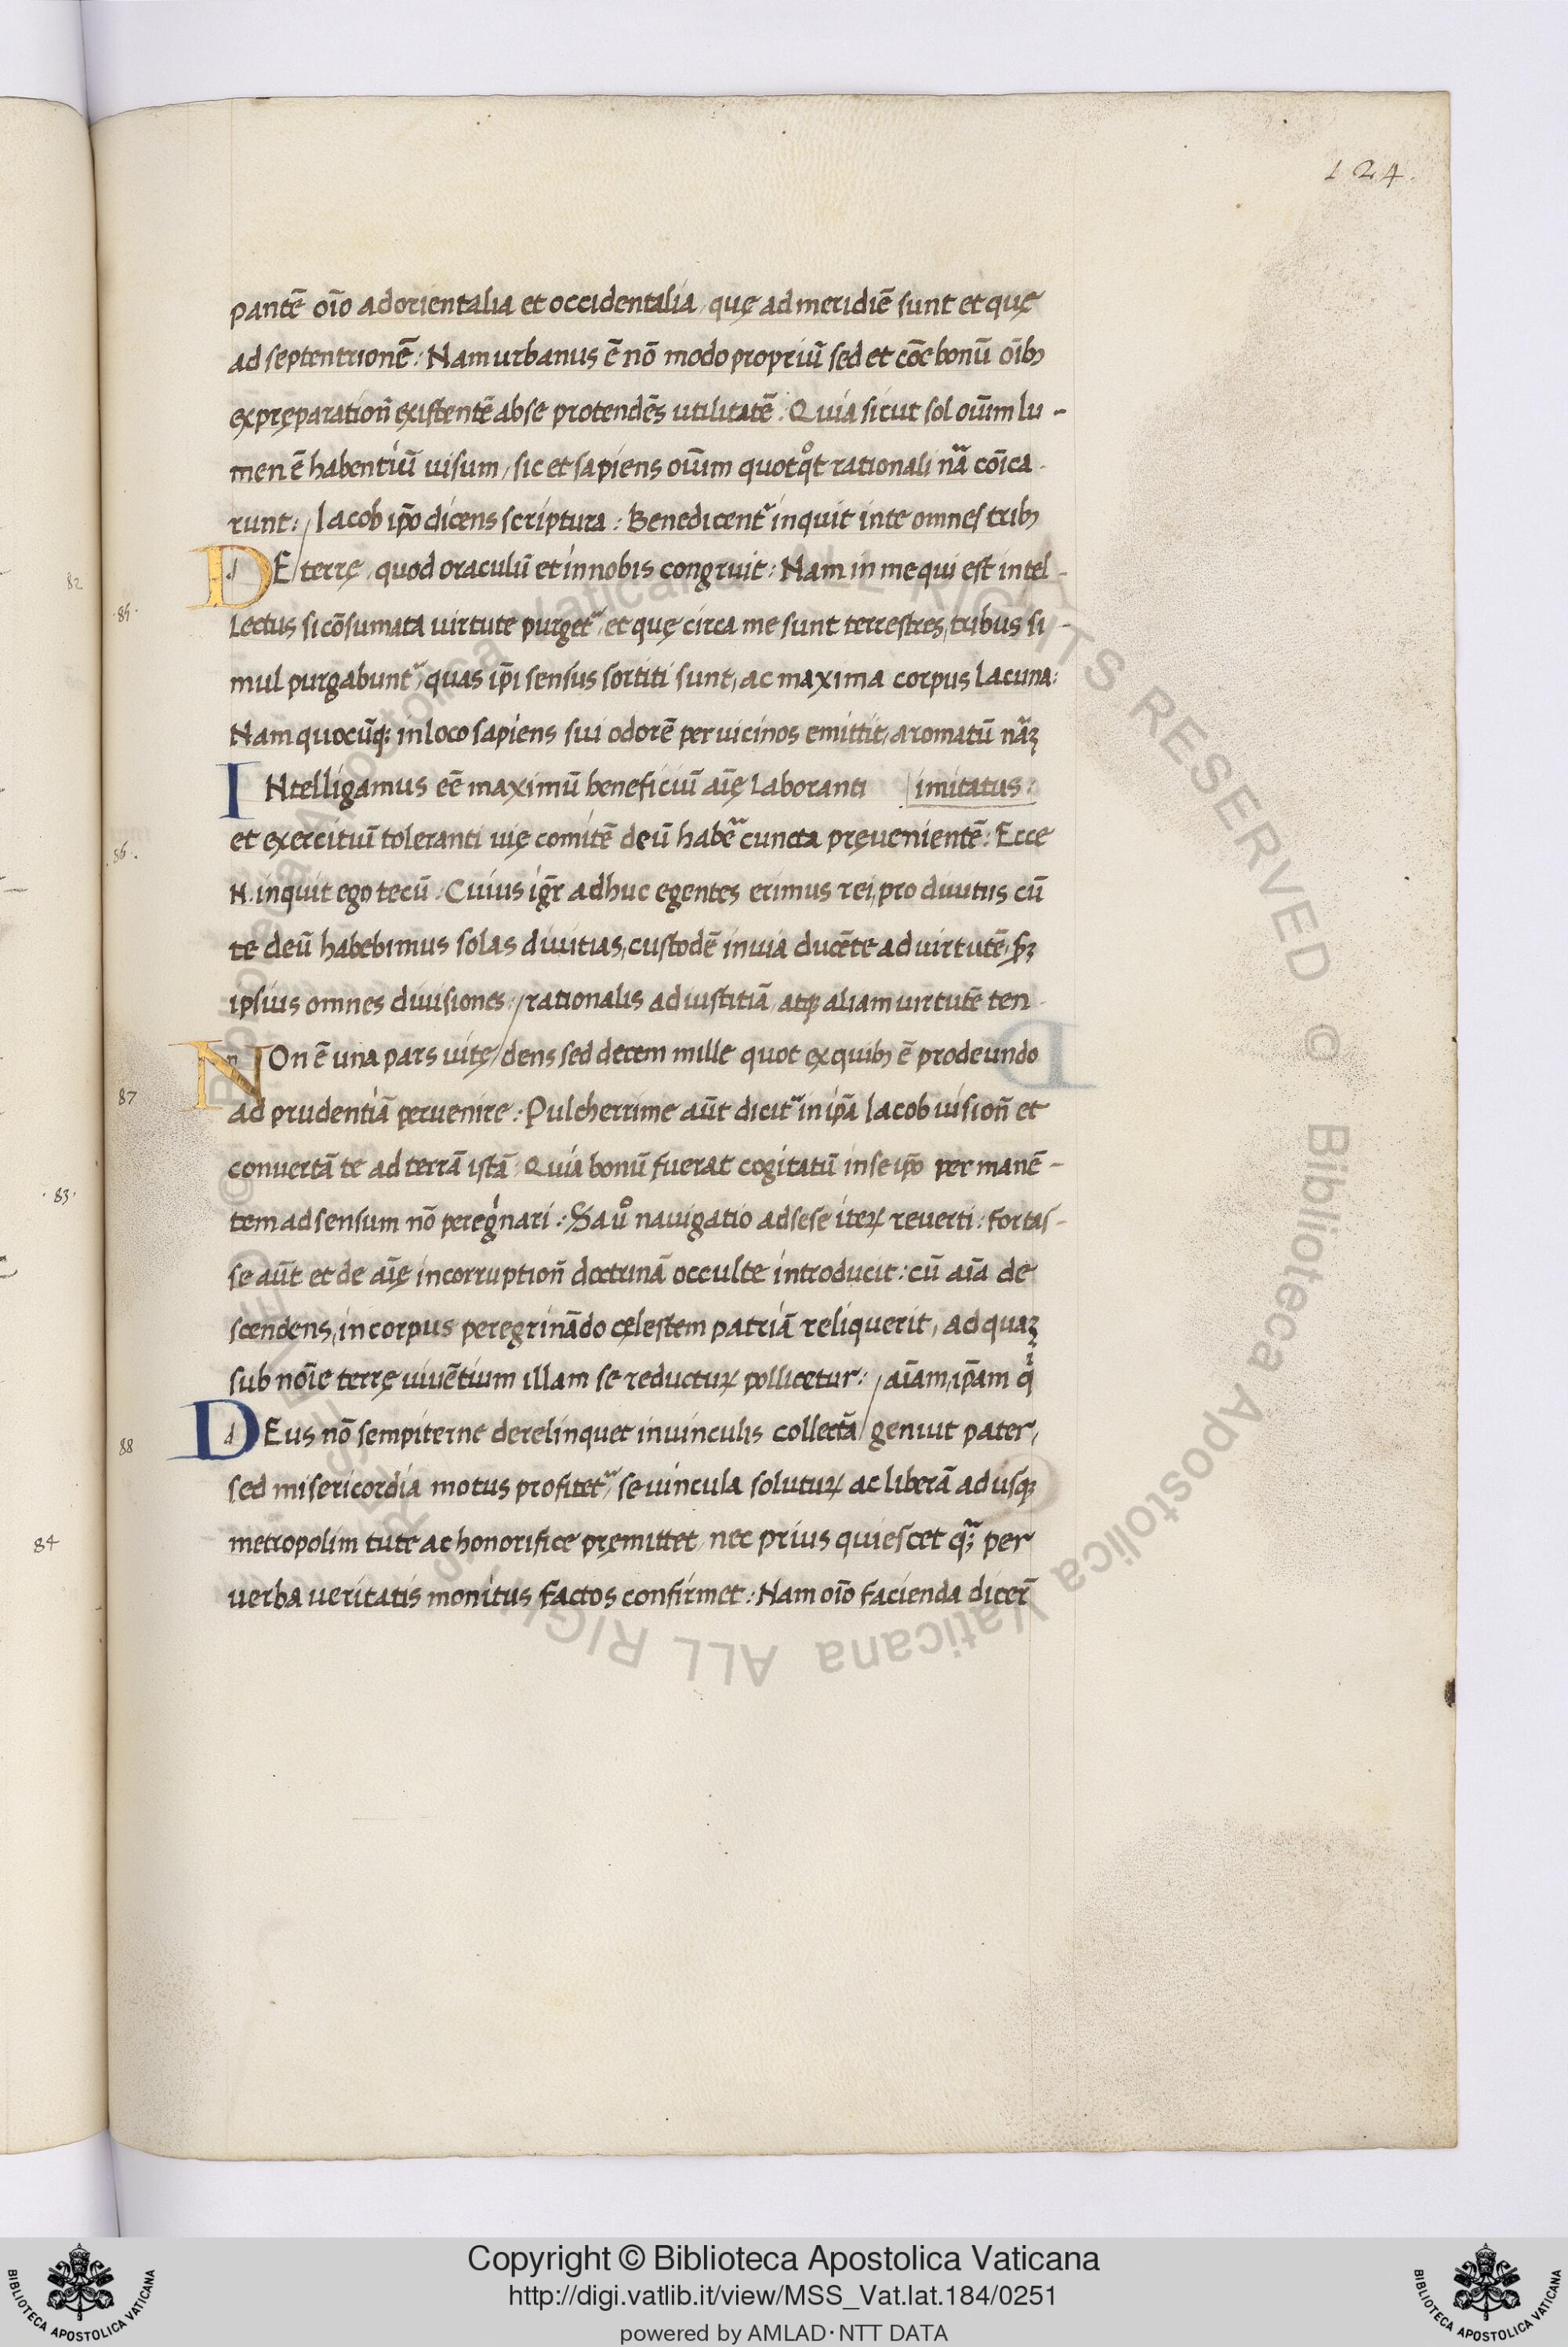 124.
pantē oīo ad orientalia et occidentalia, quę ad meridiē sunt et quę
ad septentrionē: Nam urbanus ē nō modo propriū sed et cōe bonū oībꝫ
ex pręparatioñ existentē ab se protendēs utilitatē. Quia sicut sol oīum lu-
men ē habentiū uisum, sic et sapiens oīum quotqͦt rationali nã coīca-
runt: / Iacob ip̄o dicens scriptura: Benedicentᷣ inquit in te omnes tribꝫ
82
DE / terrę, quod oraculū et in nobis congruit: Nam in me qui est intel-
85.
lectus si cōsumata uirtute purgetᷣ, et quę circa me sunt terrestres, tribus si-
mul purgabuntᷣ, quas ip̄i sensus sortiti sunt, ac maxima corpus lacuna:
Nam quocūqꝫ in loco sapiens sui odorē per uicinos emittit, aromatū nãꝫ
INtelligamus eē maximū beneficiū aīę laboranti / imitatus:
86.
et exercituū toleranti uię comitē deū habẽ cuncta pręuenientē: Ecce
N. inquit ego tecū. Cuius igr̄ adhuc egentes erimus rei, pro diuitiis cū
te deū habebimus solas diuitias, custodē in uia ducēte ad uirtutē, pꝫ
ipsius omnes diuisiones: / rationalis ad iustitiā, atqꝫ aliam uirtutē ten-
NOn ē una pars uitę / dens sed decem mille quot ex quibꝫ ē prodeundo
87
ad prudentiā peruenire: Pulcherrime aūt dicitᷣ in ip̄a Iacob uisioñ et
conuertā te ad terrā istā. Quia bonū fuerat cogitatū in se ip̄o permanē-
.83.
tem ad sensum nō peregͥnari: Sa uͦ nauigatio ad sese iteꝝ reuerti: fortas-
se aūt et de aīę incorruptioñ doctrinā occulte introducit: cū aīa de
scendens, in corpus peregrināndo cęlestem patriā reliquerit, ad quaꝫ
sub noīe terrę uiuētium illam se reductuꝝ pollicetur: / aīam, ip̄am qͥ
DEus nō sempiterne derelinquet in uinculis collectā / genuit pater,
88
sed misericordia motus profitetᷣ, se uincula solutuꝝ ac liberā ad usqꝫ
84
metropolim tute ac honorifice pręmittet, nec prius quiescet qꝫᷓ per
uerba ueritatis monitus factos confirmet: Nam oīo facienda dicer̄
Copyright © Biblioteca Apostolica Vaticana
http://digi.vatlib.it/view/MSS_Vat.lat.184/0251
powered by AMLAD·NTT DATA
BIBLIOTECA APOSTOLICA VATICANA
BIBLIOTECA APOSTOLICA VATICANA